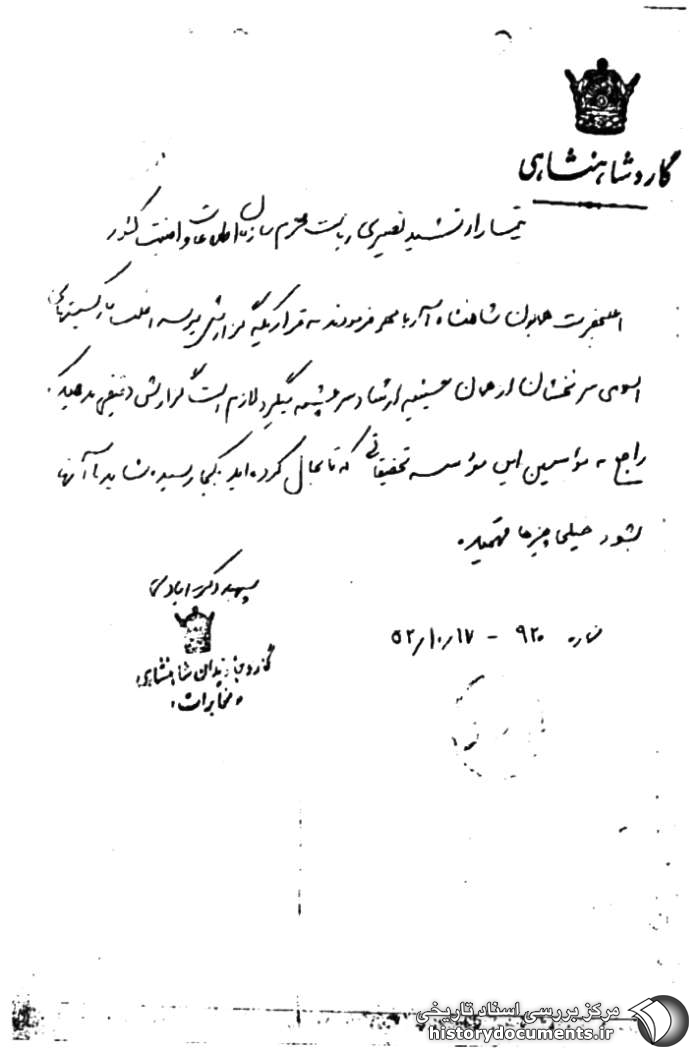 گارد شاهنشاهی
تیمسار ارتشبد نصیری ریاست محترم سازمان اطلاعات و امنیت کشور
اعلیحضرت همایون شاهنشاه آریامهر فرمودند به قراریکه گزارش میرسد اغلب مارکسیستهای
اسلامی سرنخشان از همان حسینیه ارشاد سرچشمه میگیرد لازم است گزارش دقیقی بدهید که
راجع به مؤسسین این مؤسسه تحقیقاتی که تا بحال کرده‌اید بکجا رسیده شاید با آنها
بشود خیلی چیزها فهمید.
سپهبد دکتر ایادی
گارد جاویدان شاهنشاهی
«مخابرات»
شماره ۹۲۰ - ۵۲/۱۰/۱۷
مرکز بررسی اسناد تاریخی
historydocuments.ir